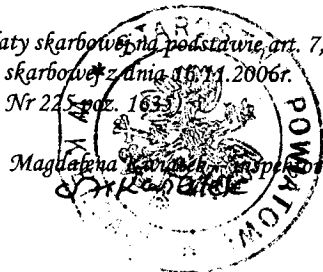 aty skarbowej na podstawie art. 7,
skarbowej z dnia 16.11.2006r.
Nr 225 poz. 1635)
Magdalena Kwiatek - inspektor
STAROS
POWIATOW